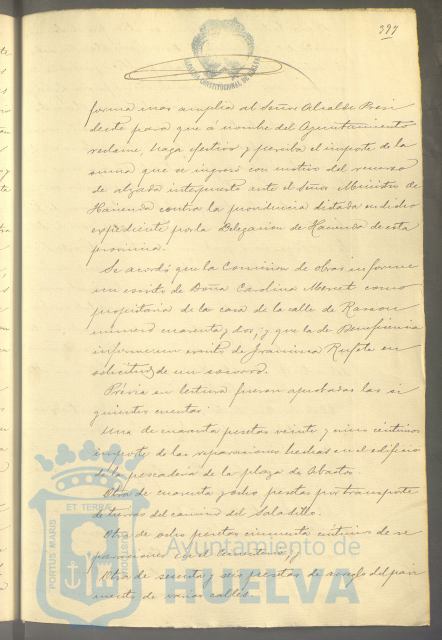 397
ALCALDIA CONSTITUCIONAL DE HUELVA
forma mas amplia al Señor Alcalde Presi
dente para que á nombre del Ayuntamiento
reclame, haga efectivo y perciba el importe de la
suma que se ingresó con motivo del recurso
de alzada interpuesto ante el Señor Ministro de
Hacienda contra la providencia dictada en dicho
expediente por la Delegacion de Hacienda de esta
provincia.
Se acordó que la Comision de obras informe
un escrito de Doña Carolina Moret como
propietaria de la casa de la calle de Rascon
numero cuarenta y dos, y que la de Beneficencia
informe un escrito de Francisca Rufeta en
solicitud de un socorro.
Prévia su lectura fueron aprobadas las si
guientes cuentas:
Una de cuarenta pesetas veinte y cinco centimos
importe de las reparaciones hechas en el edificio
de la pescaderia de la plaza de Abastos.
Otra de cuarenta y ocho pesetas por transporte
de tierras del camino del Saladillo.
Otra de ocho pesetas cincuenta centimos de re
paraciones en el
Otra de sesenta y seis pesetas de arreglo del pavi
mento de varias calles.
PORTUS MARIS ET TERRAE CUSTODIA
Ayuntamiento de
HUELVA